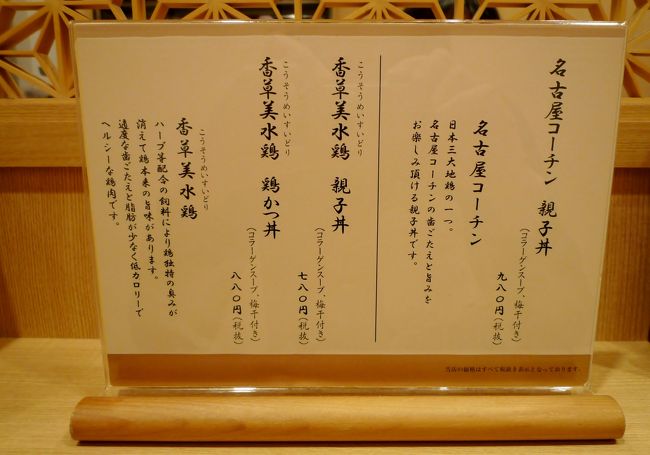 名古屋コーチン 親子丼
(コラーゲンスープ、梅干付き)
九八〇円(税抜)
名古屋コーチン
日本三大地鶏の一つ。
名古屋コーチンの歯ごたえと旨みを
お楽しみ頂ける親子丼です。
こうそうめいすいどり
香草美水鶏 親子丼
(コラーゲンスープ、梅干付き)
七八〇円(税抜)
こうそうめいすいどり
香草美水鶏 鶏かつ丼
(コラーゲンスープ、梅干付き)
八八〇円(税抜)
こうそうめいすいどり
香草美水鶏
ハーブ等配合の飼料により鶏独特の臭みが
消えて鶏本来の旨味があります。
適度な歯ごたえと脂肪が少なく低カロリーで
ヘルシーな鶏肉です。
当店の価格はすべて税抜き表示となっております。